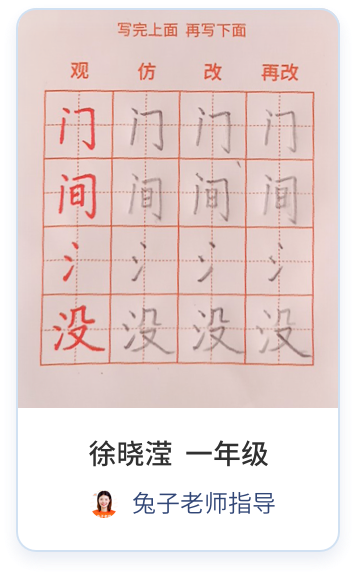 写完上面 再写下面
观 仿 改 再改
门 门 门 门
间 间 间 间
氵 氵 氵 氵
没 没 没 没
徐晓滢 一年级
兔子老师指导